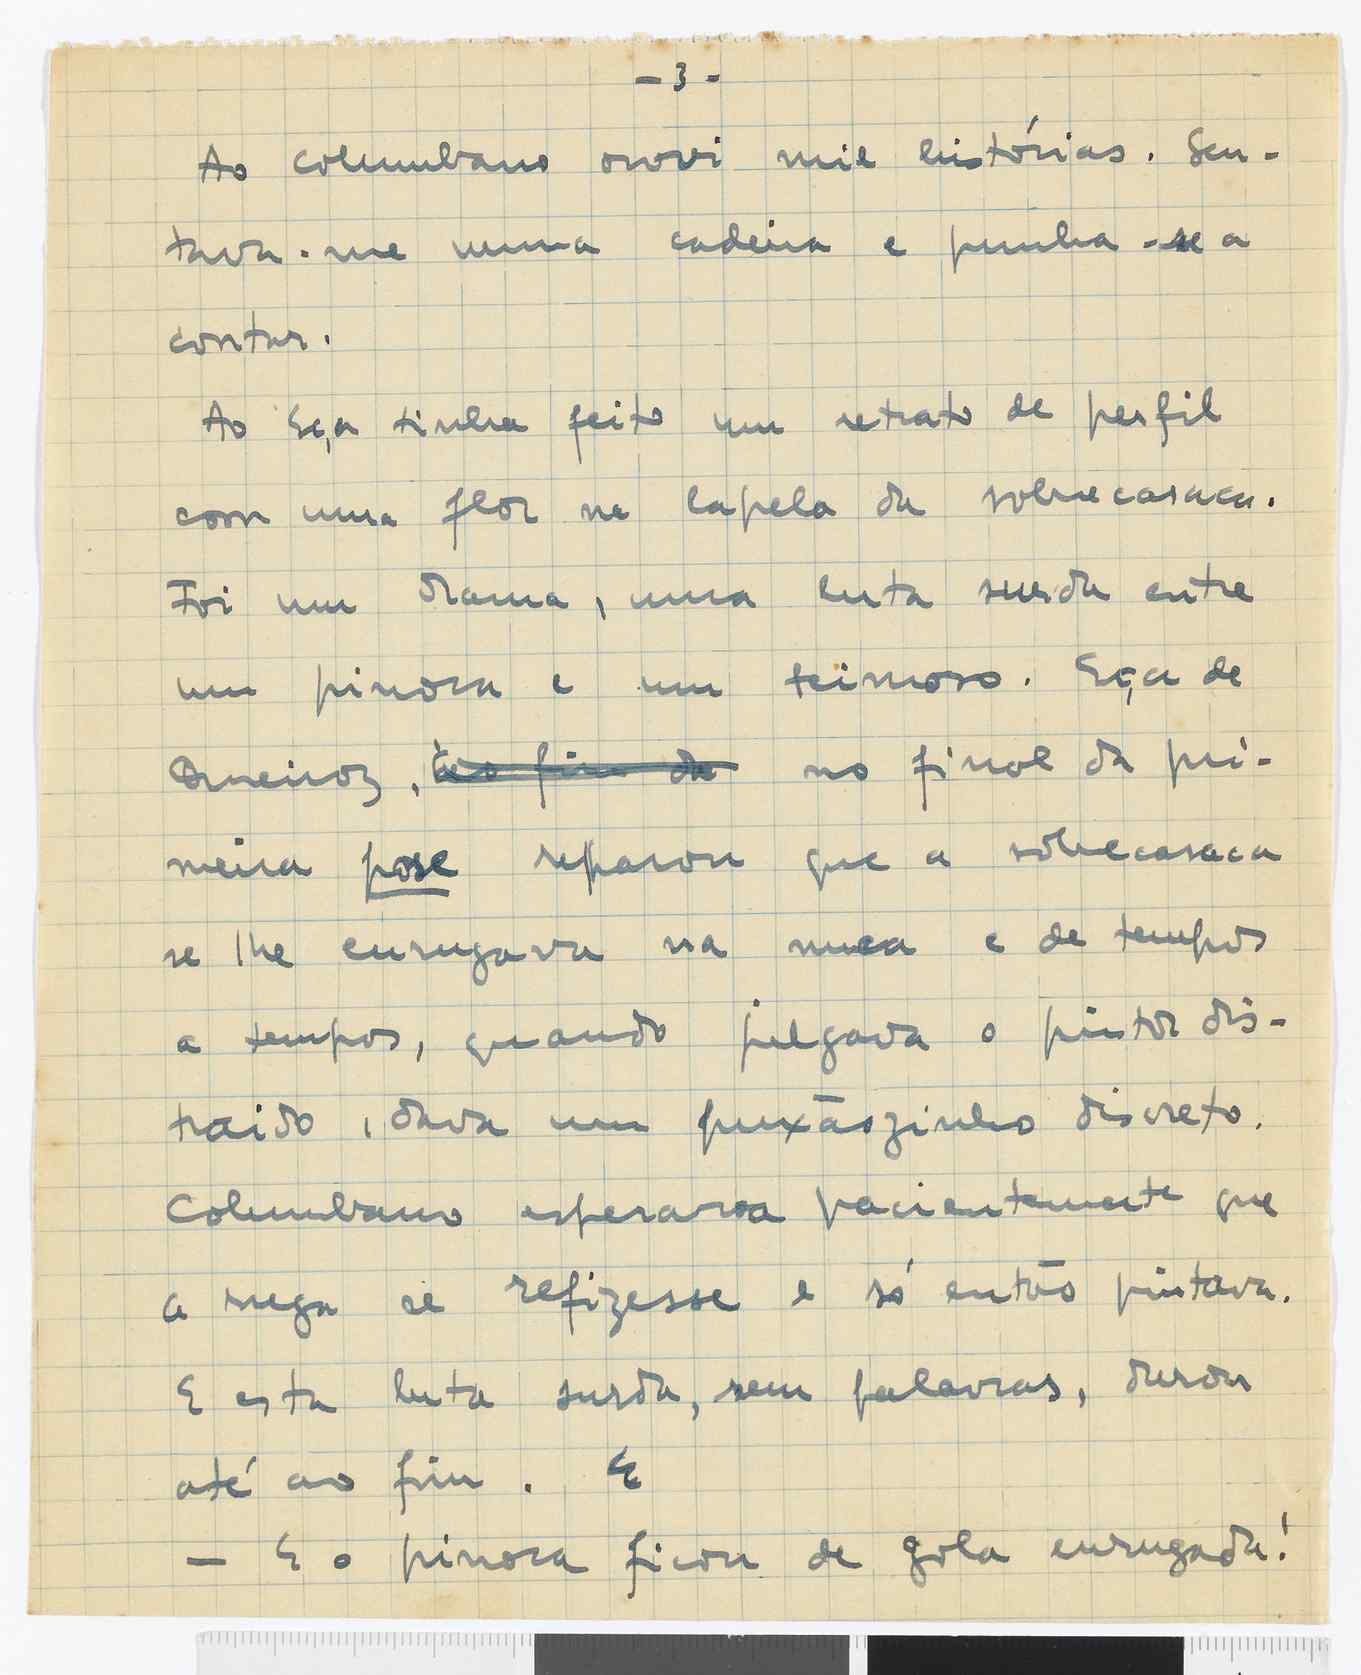 - 3 -
Ao Columbano ouvi mil histórias. Sen-
tava-me numa cadeira e punha-se a
contar.
Ao Eça tinha feito um retrato de perfil
com uma flor na lapela da sobrecasaca.
Foi um drama, uma luta surda entre
um pinoca e um teimoso. Eça de
Queiroz, ao fim da no final da pri-
meira pose reparou que a sobrecasaca
se lhe enrugava na nuca e de tempos
a tempos, quando julgava o pintor dis-
traido, dava um puxãozinho discreto.
Columbano esperava pacientemente que
a ruga se refizesse e só então pintava.
E esta luta surda, sem palavras, durou
até ao fim. E
— E o pinoca ficou de gola enrugada!